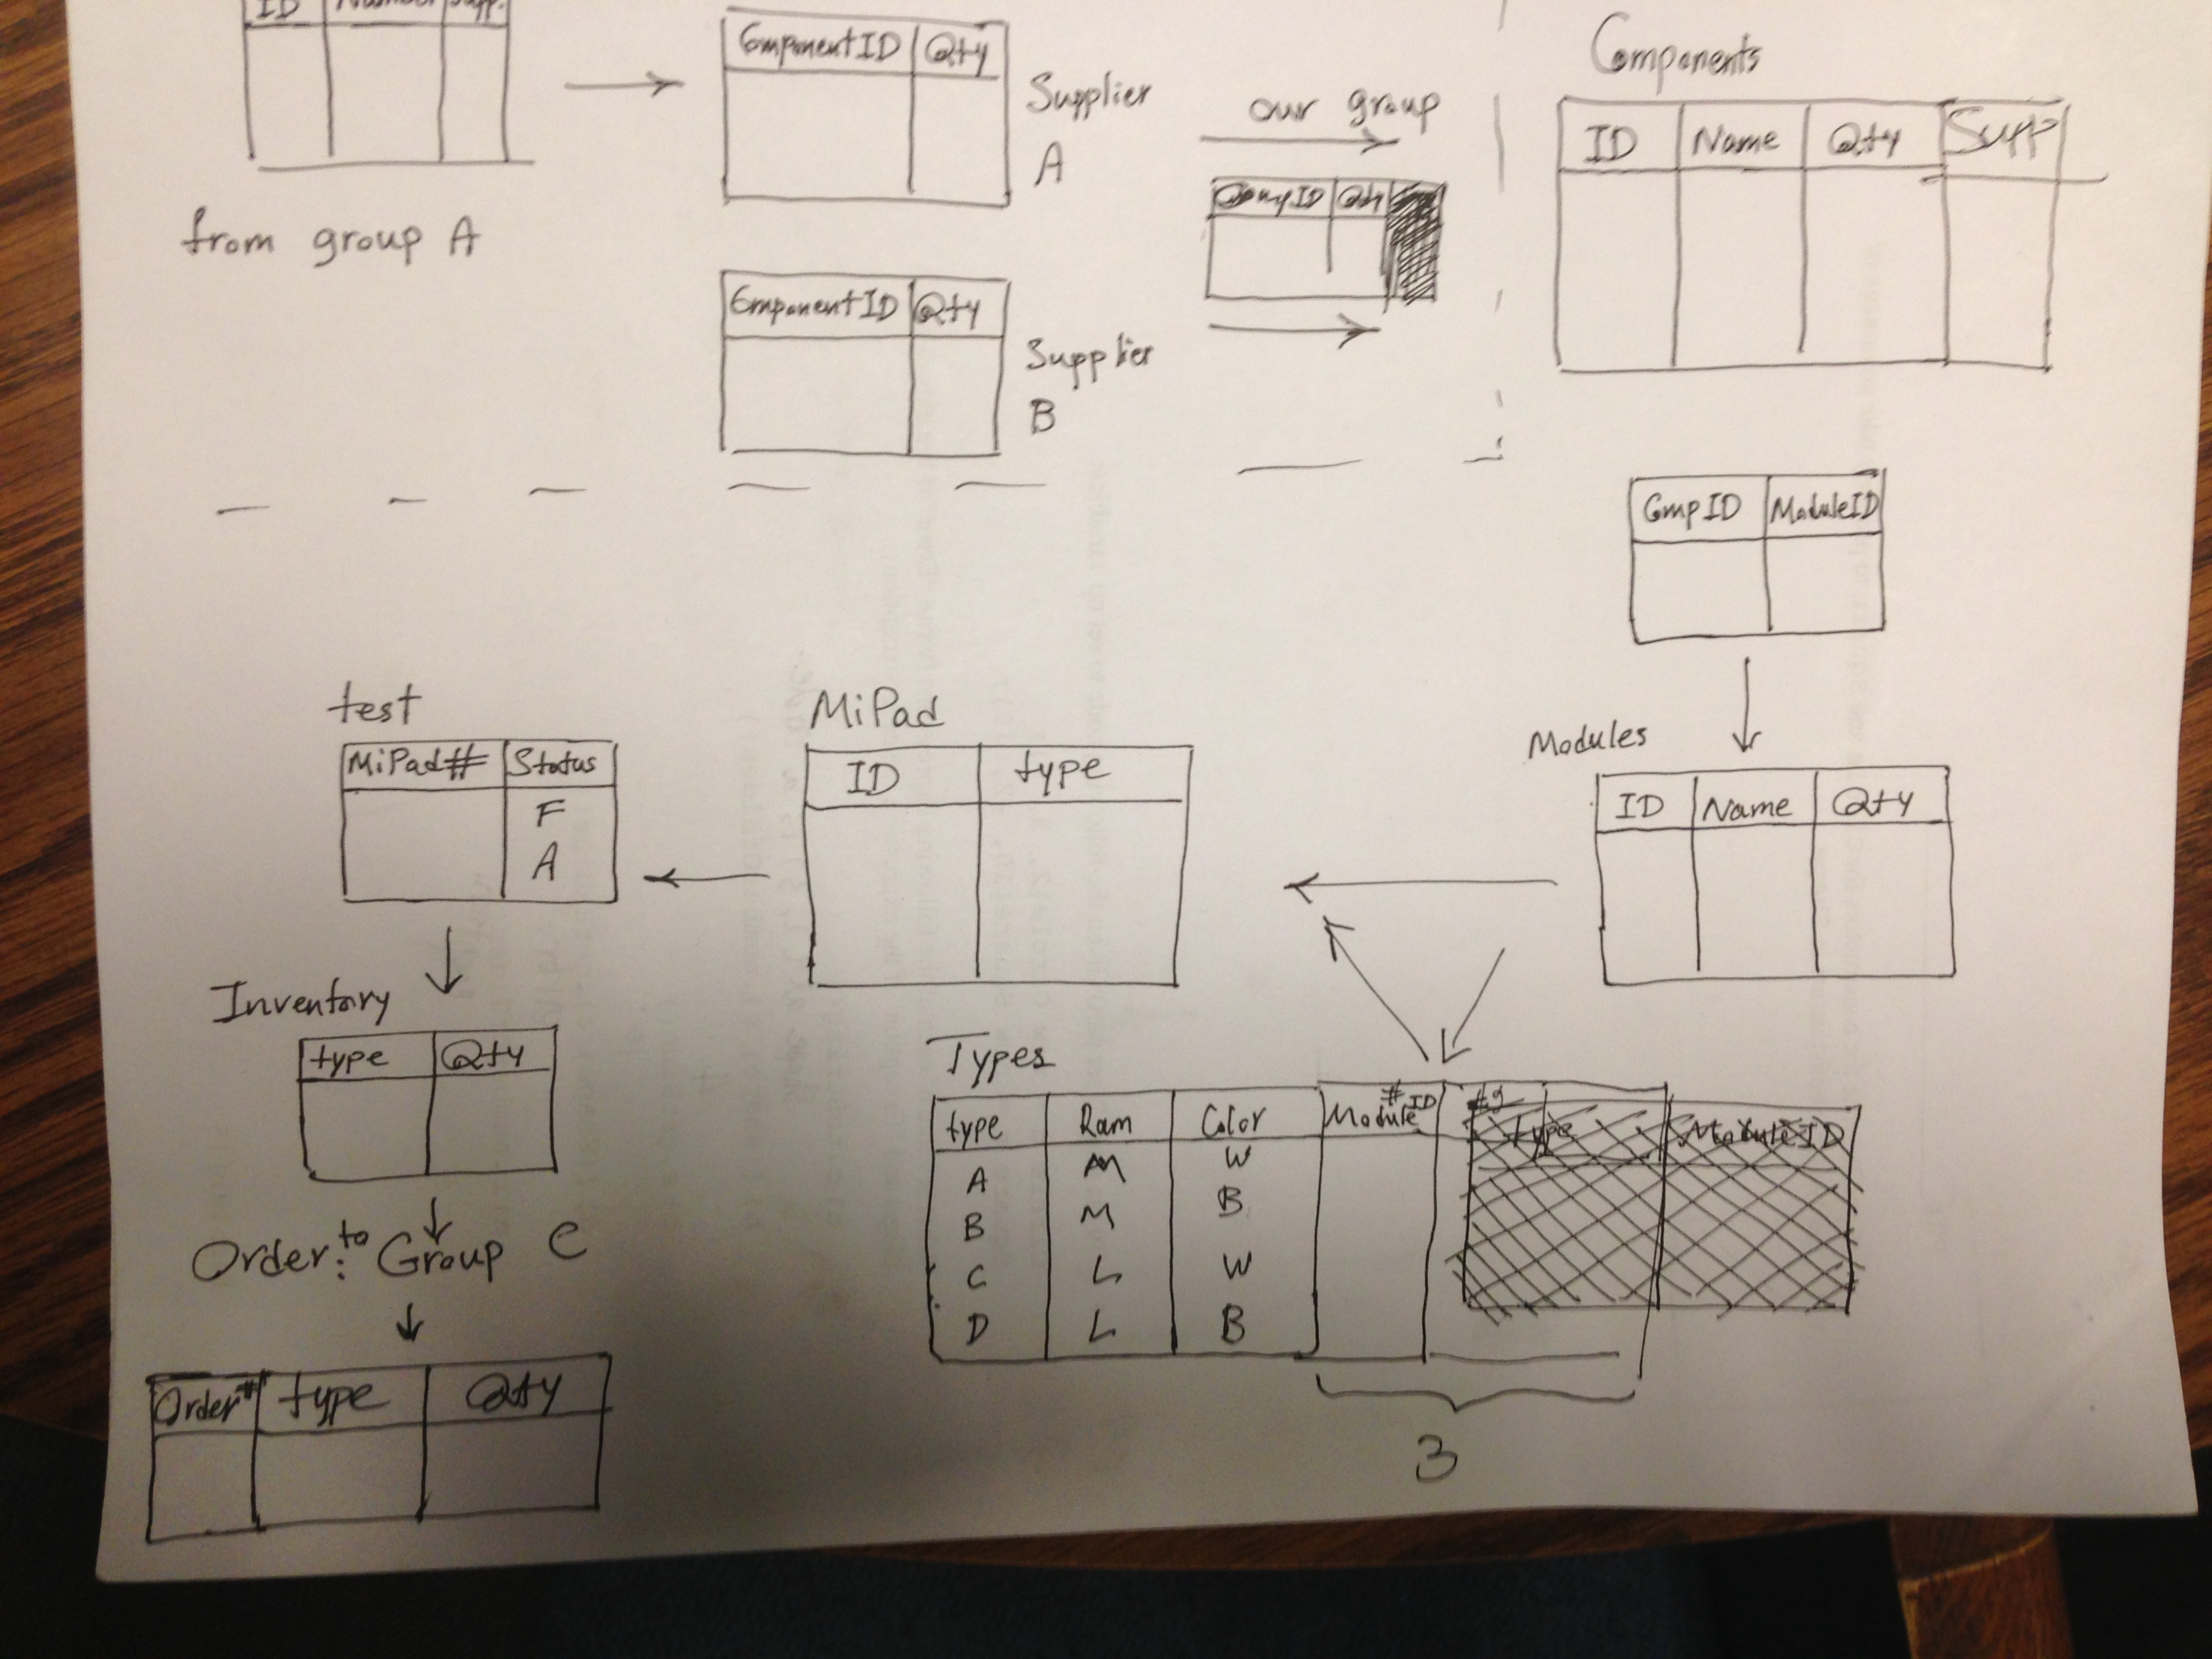 ID Number Supp.
from group A
ComponentID Qty
Supplier
A
ComponentID Qty
Supplier
B
our group
CompID Qty
Components
ID Name Qty Supp
CmpID ModuleID
Modules
ID Name Qty
MiPad
ID type
test
MiPad# Status
F
A
Inventory
type Qty
Order: to Group C
Order# type Qty
Types
type Ram Color Module #ID #2
A M W
B M B
C L W
D L B
type ModuleID
3